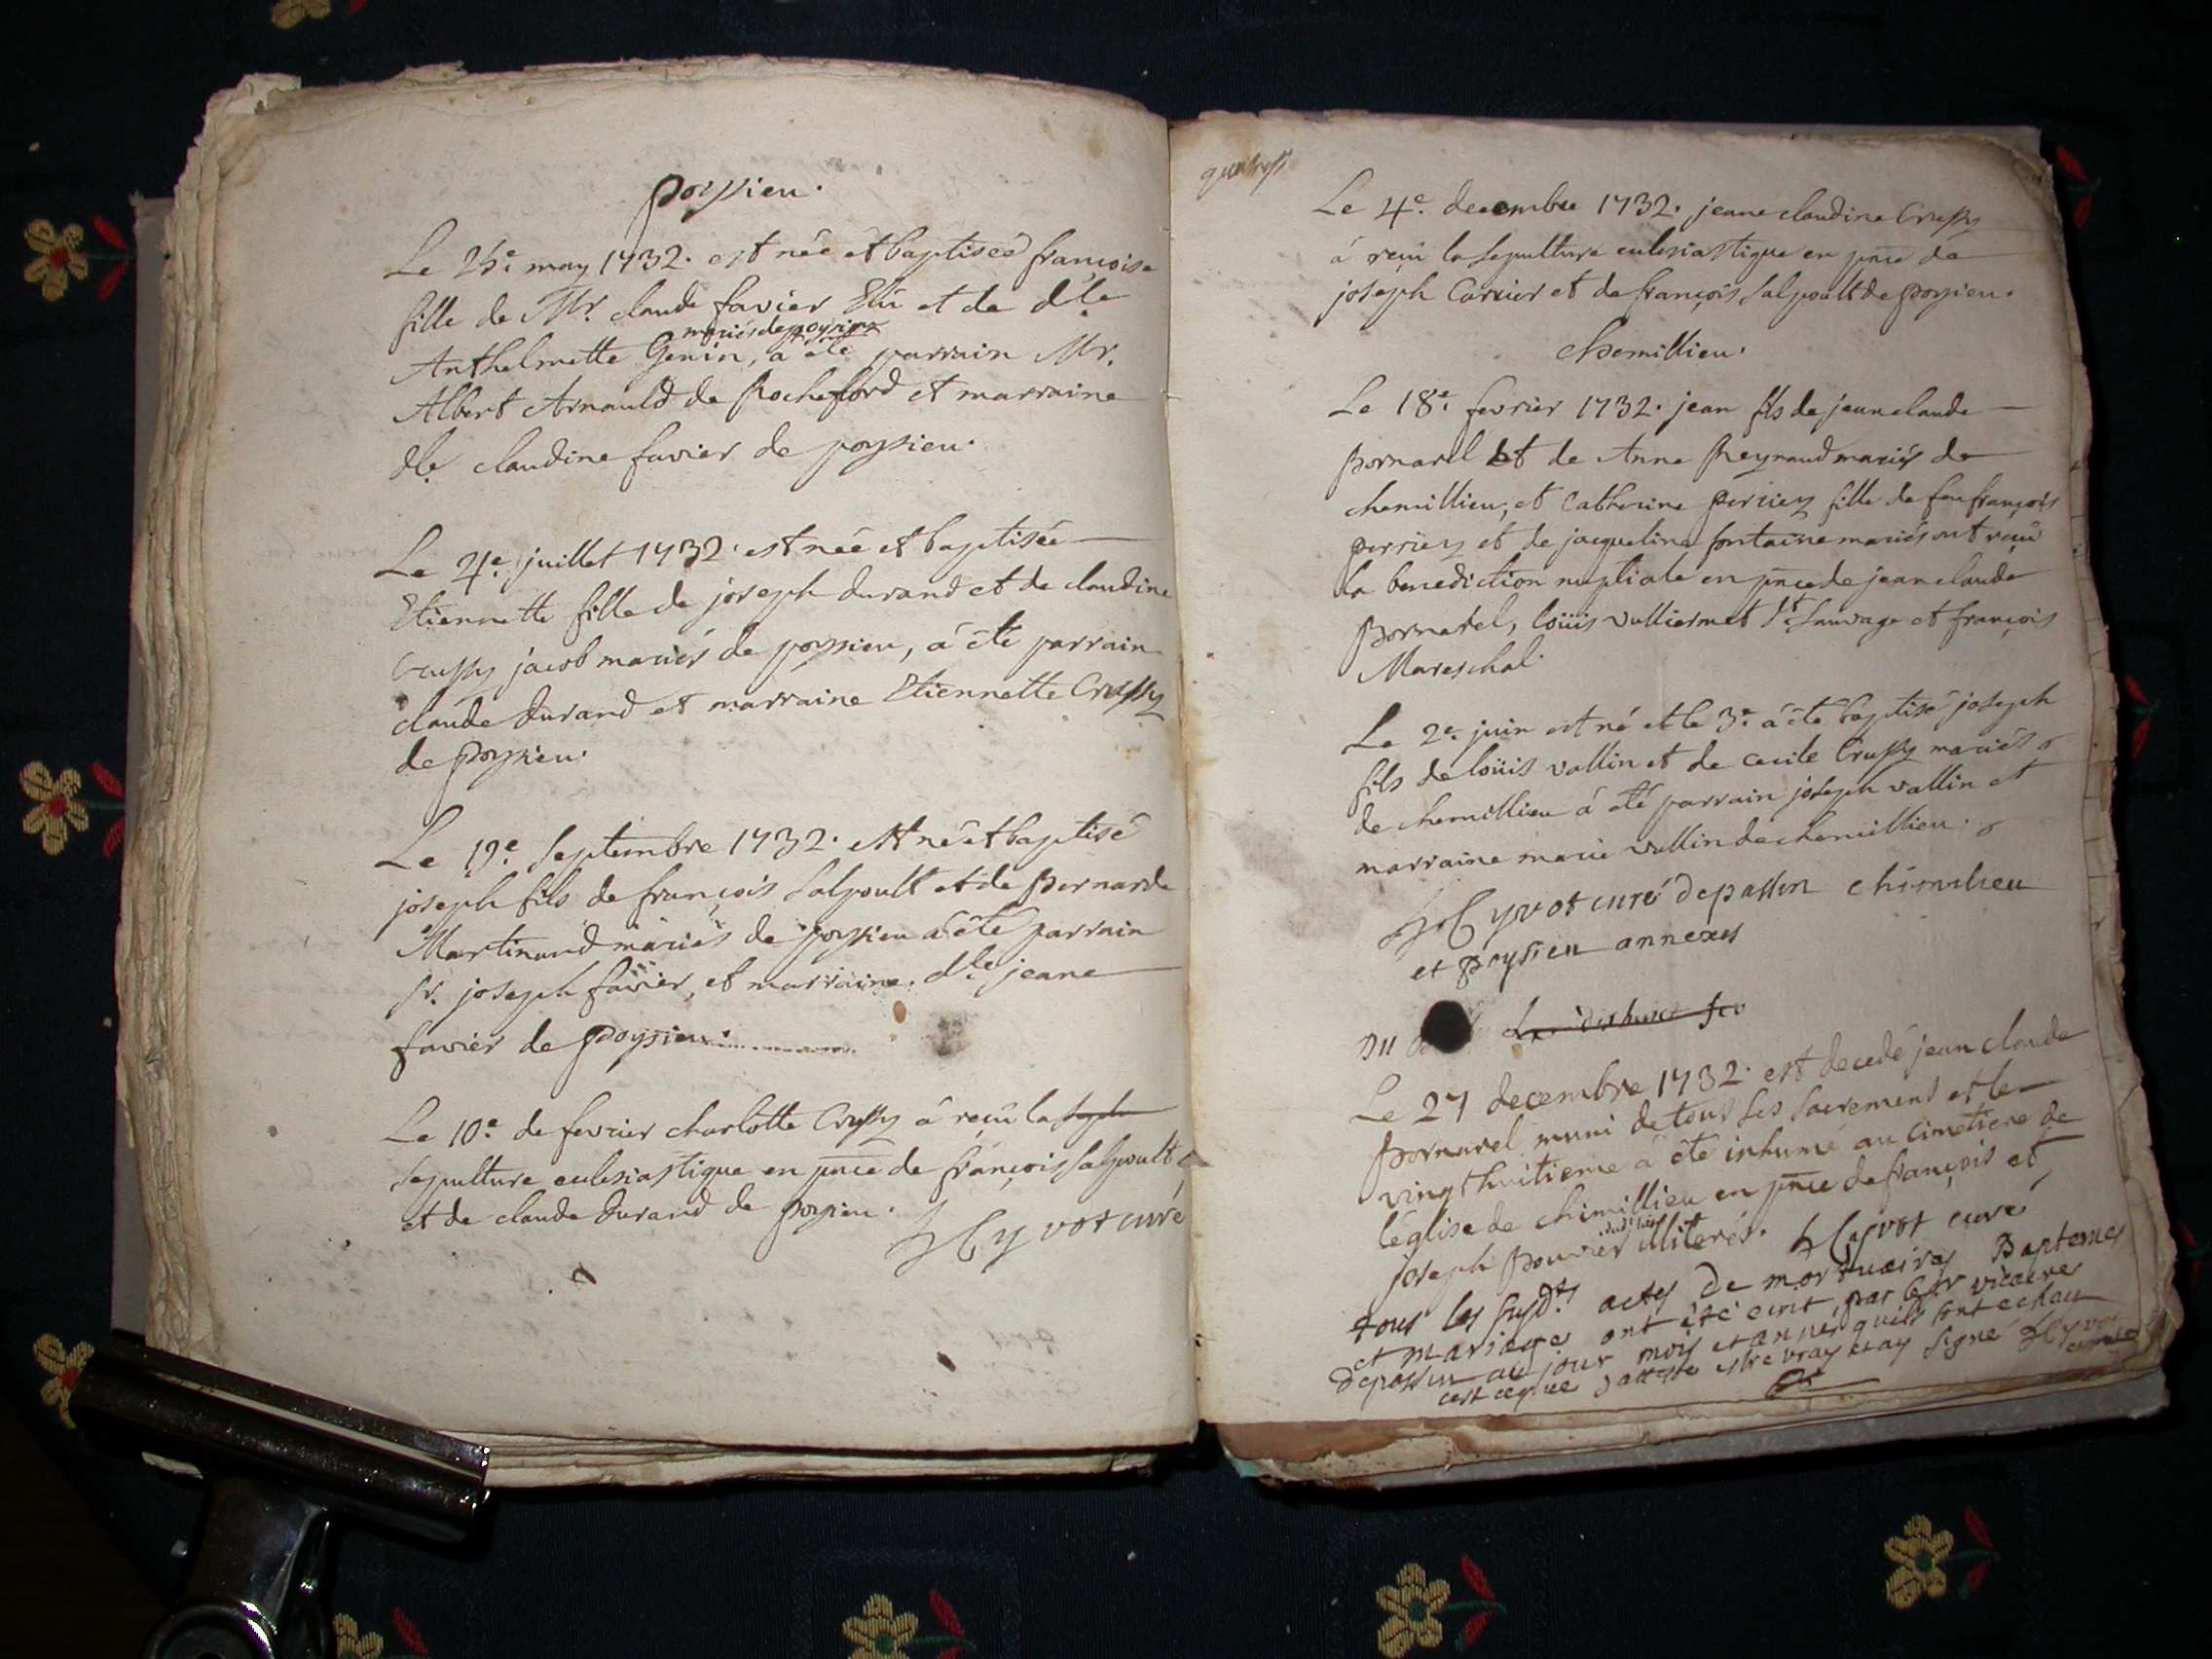 poysien.
Le 25e. may 1732. est née et baptisée françoise
fille de Mr. claude favier Elû et de dle.
mariés de poysieux
Anthelmette Genin, a été parrain Mr.
Albert Arnauld de Rocheford et marraine
dle. claudine favier de poysien.
Le 4e. juillet 1732. est née et baptisée
Etiennette fille de joseph durand et de claudine
Crussy jacob mariés de poysien, á été parrain
claude durand et marraine Etiennette Crussy
de poysien.
Le 19e. septembre 1732. est né et baptisé
joseph fils de françois salpoult et de Bernarde
Martinand mariés de poysien a été parrain
sr. joseph favier, et marraine. dle. jeane
favier de poysien.
Le 10e. de fevrier charlotte Crussy á reçû la
sepulture eclesiastique en pnce de françois salpoult
et de claude durand de poysien.
Hyvot curé
Le 4e. decembre 1732. jeane claudine Crussy
á reçû la sepulture eclesiastique en pnce de
joseph Carrier et de françois salpoult de poysien.
chemillieu.
Le 18e. fevrier 1732. jean fils de jean claude
Bornarel et de Anne Reynaud mariés de
chemillieu, et Catherine perriez fille de feu françois
perriez et de jacqueline fontaine mariés ont reçû
la benediction nuptiale en pnce de jean claude
Bornarel, loüis vulliermet St. Sauvage et françois
Mareschal.
Le 2e. juin est né et le 3e. á été baptisé joseph
fils de loüis vallin et de cecile Crussy mariés
de chemillieu á été parrain joseph vallin et
marraine marie vullin de chemillieu.
Hyvot curé de passin chimilieu
et poysieu annexes
Du
Le 27 decembre 1732. est decedé jean claude
Bornarel muni de tous ses sacrements et le
vingt huitieme á été inhumé au cimetiere de
l'église de chimillieu en pnce de françois et
joseph Bouvier illiterés. Hyvot curé
tous les susdts actes de mortuaires Baptemes
et mariages ont été ecrit par le sr vicaire
de passin au jour mois et annes quils sont echeu
cest ce que j'atteste estre vray et ay signé Hyvot
curé